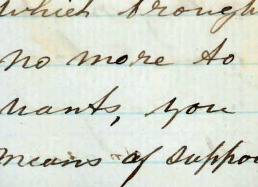 which brough
no more to
wants, you
means of suppor